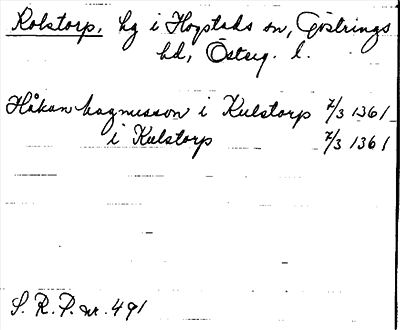 Rolstorp, hg i Hogstads sn, Göstrings
hd, Österg. l.
Håkan Magnusson i Kulstorp 7/3 1361
i Kulstorp 7/3 1361
S. R. P. nr. 491